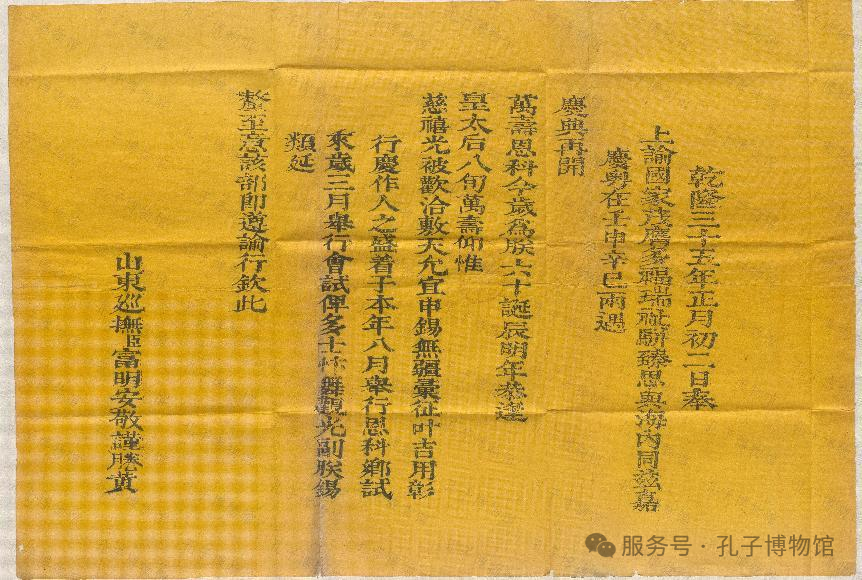 乾隆三十五年正月初二日奉
上諭國家茂膺多福瑞祉駢臻思與海内同玆嘉
慶粤在壬申辛巳兩遇
慶典再開
萬壽恩科今歲爲朕六十誕辰明年恭逢
皇太后八旬萬壽仰惟
慈禧光被歡洽敷天允宜申錫無疆彙征叶吉用彰
行慶作人之盛着于本年八月舉行恩科鄉試
來歲三月舉行會試俾多士忭舞觀光副朕錫
類延
釐至意該部即遵諭行欽此
山東巡撫臣富明安敬謹謄黄
服务号·孔子博物馆